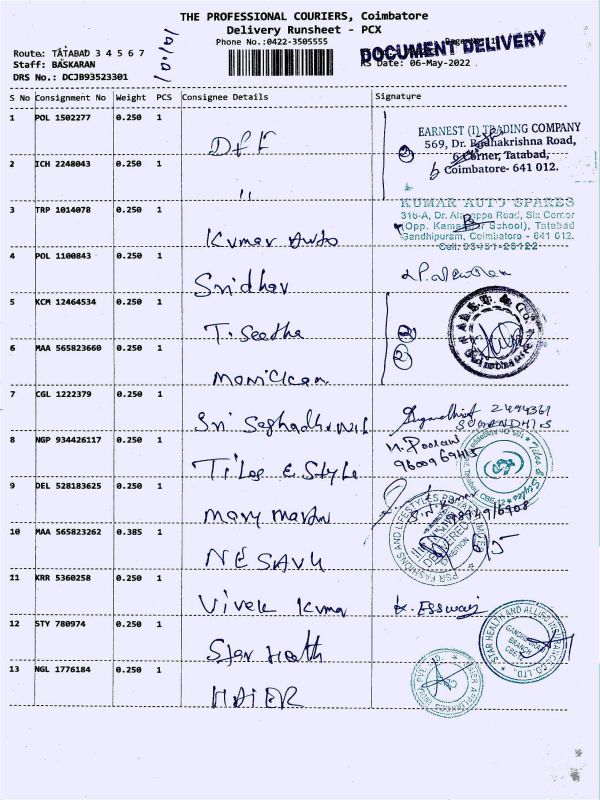 THE PROFESSIONAL COURIERS, Coimbatore
Delivery Runsheet - PCX
Phone No.:0422-3505555
DOCUMENT DELIVERY
Route: TATABAD 3 4 5 6 7
Staff: BASKARAN
RS Date: 06-May-2022
DRS No.: DCJB93523301
S No Consignment No Weight PCS Consignee Details Signature
1 POL 1502277 0.250 1
DFF
EARNEST (I) TRADING COMPANY
569, Dr. Radhakrishna Road,
6 Corner, Tatabad,
Coimbatore- 641 012.
2 ICH 2248043 0.250 1
"
3 TRP 1014078 0.250 1
Kumar Auto
KUMAR AUTO SPARES
316-A, Dr. Alagappa Road, Six Corner
(Opp. Kamarajar School), Tatabad
Gandhipuram, Coimbatore - 641 012.
4 POL 1100843 0.250 1
Sridhar
5 KCM 12464534 0.250 1
T. Seetha
6 MAA 565823660 0.250 1
Manickam
7 CGL 1222379 0.250 1
Sri
2494361
SUGANDHI S
8 NGP 934426117 0.250 1
Tiles & Style
9600969415
9 DEL 528183625 0.250 1
Mary Martin
10 MAA 565823262 0.385 1
NESAVU
PSR FASHIONS AND LIFESTYLES PRIVATE LIMITED
6/5
11 KRR 5360258 0.250 1
Vivek Kumar
12 STY 780974 0.250 1
Star Health
STAR HEALTH AND ALLIED INSURANCE CO LTD.
BRANCH
13 NGL 1776184 0.250 1
HAIER